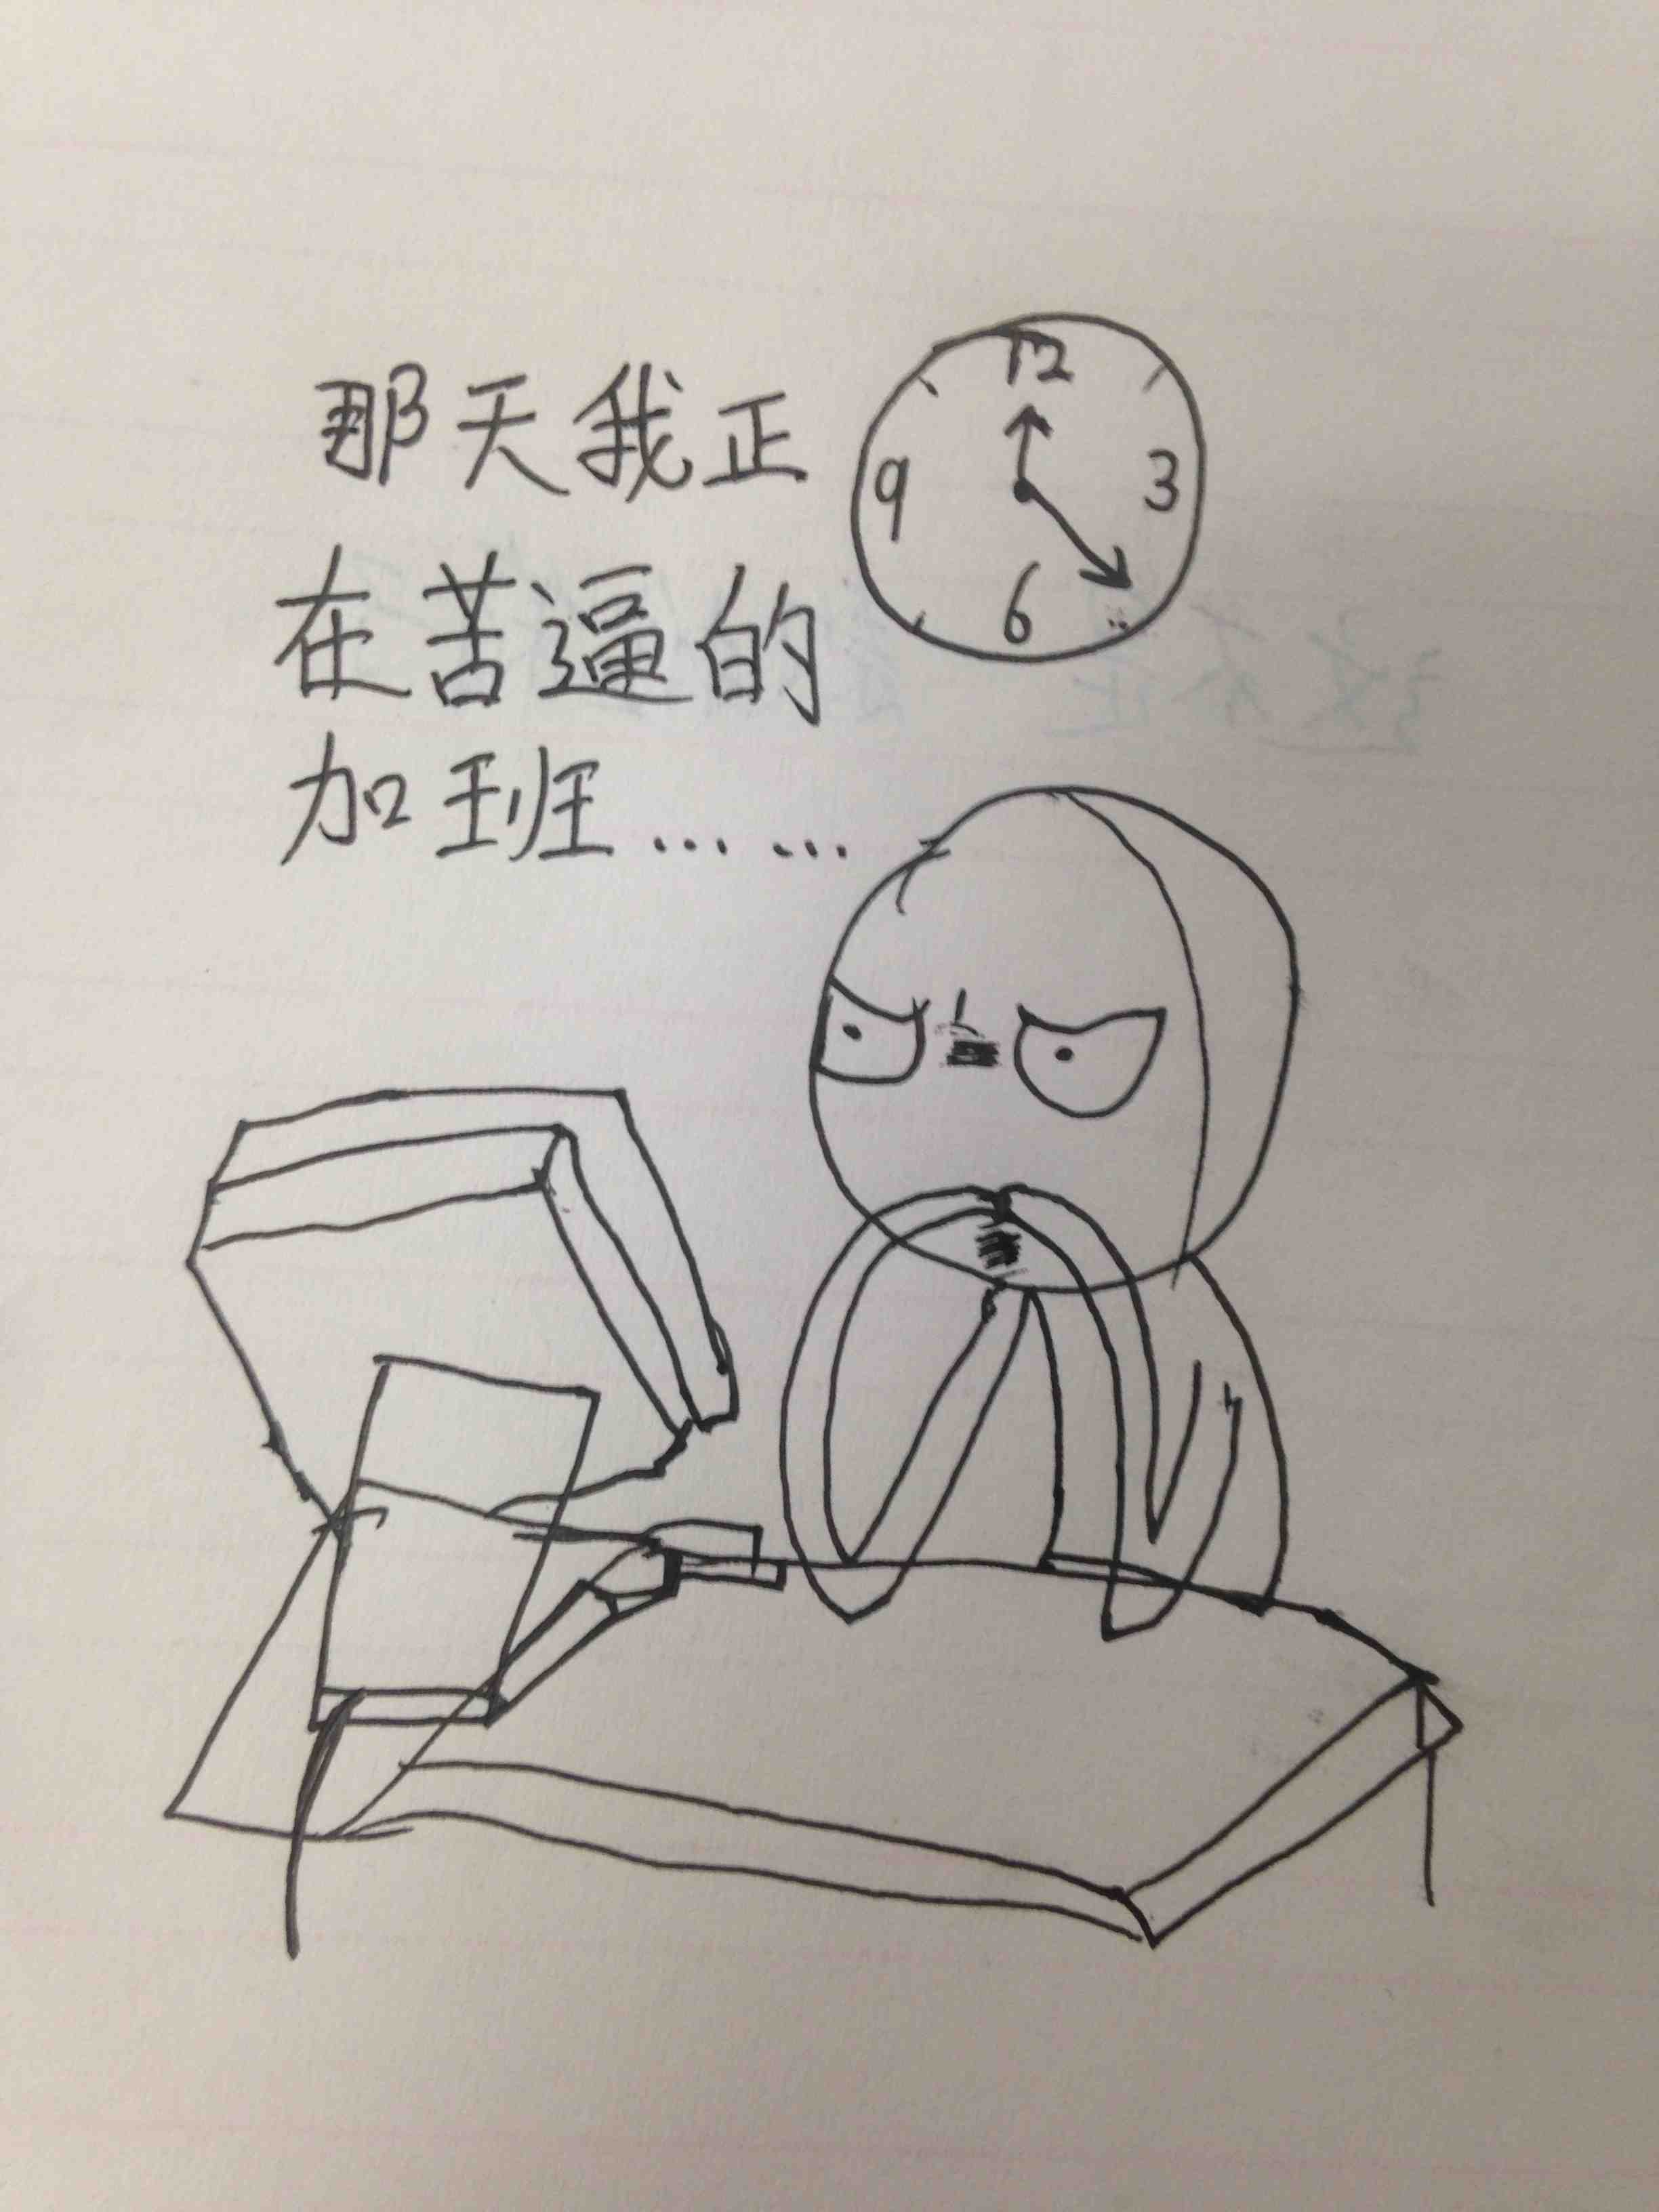 那天我正
在苦逼的
加班……
12
9 3
6